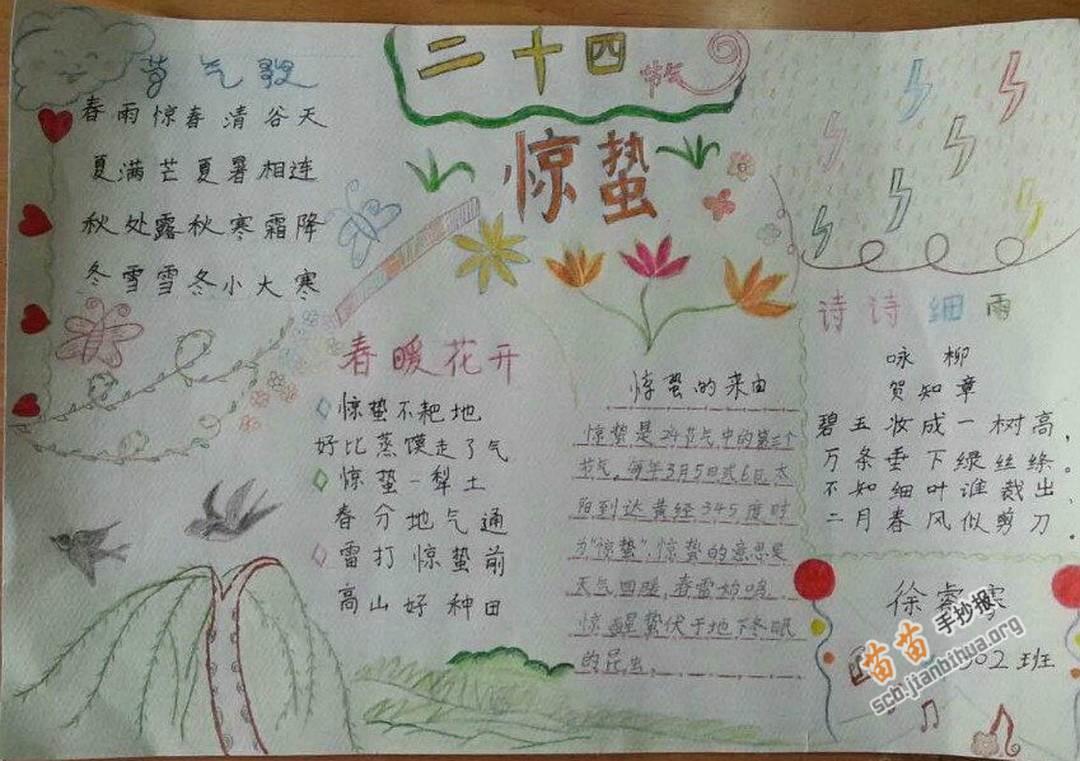 节气歌
春雨惊春清谷天
夏满芒夏暑相连
秋处露秋寒霜降
冬雪雪冬小大寒
二十四
节气
惊蛰
春暖花开
惊蛰不耙地
好比蒸馍走了气
惊蛰一犁土
春分地气通
雷打惊蛰前
高山好种田
惊蛰的来由
惊蛰是24节气中的第三个
节气。每年3月5日或6日太
阳到达黄经345度时
为“惊蛰”。惊蛰的意思是
天气回暖,春雷始鸣
惊醒蛰伏于地下冬眠
的昆虫。
诗诗细雨
咏柳
贺知章
碧玉妆成一树高,
万条垂下绿丝绦。
不知细叶谁裁出,
二月春风似剪刀。
徐睿
302班
苗苗手抄报
scb.jianbihua.org